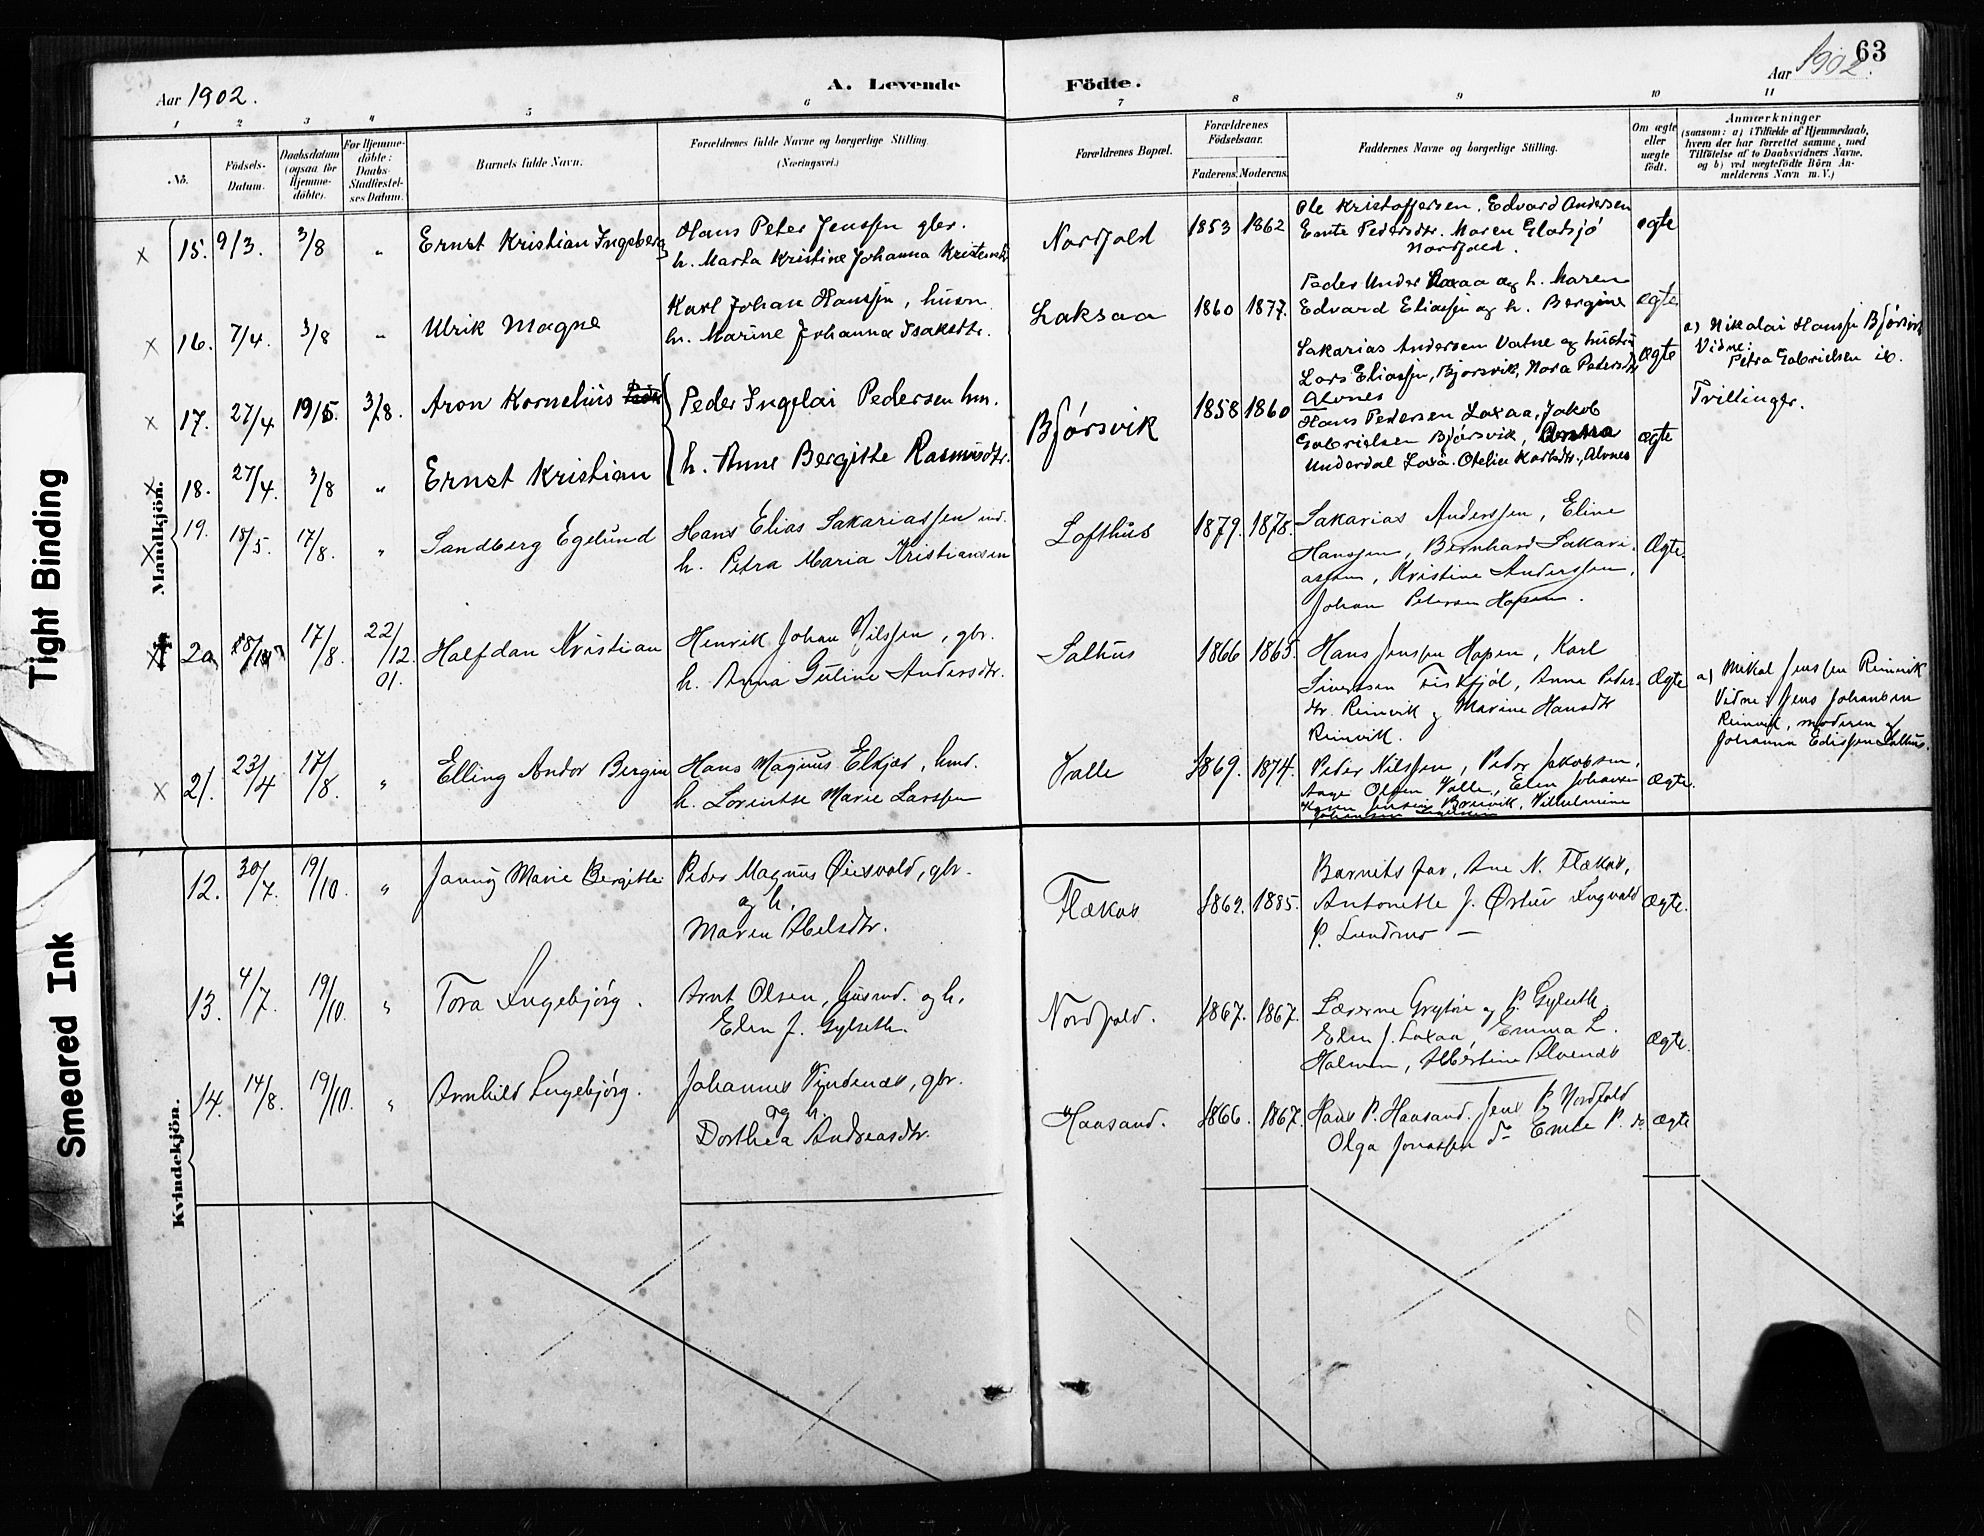 63
Aar 1902.
A. Levende Födte.
Aar 1902.
1 2 3 4 5 6 7 8 9 10 11
No.
Födsels-Datum.
Daabsdatum (ogsaa for Hjemme-döbte).
For Hjemme-döbte: Daabs-Stadfæstel-ses Datum.
Barnets fulde Navn.
Forældrenes fulde Navne og borgerlige Stilling.
(Næringsvei.)
Forældrenes Bopæl.
Forældrenes Födselsaar.
Faderens. Moderens.
Faddernes Navne og borgerlige Stilling.
Om ægte eller uægte födt.
Anmærkninger
(saasom: a) i Tilfælde af Hjemmedaab,
hvem der har forrettet samme, med
Tilföielse af to Daabsvidners Navne,
og b) ved uægtefödte Börn An-
melderens Navn m. V.)
Mandkjön.
× 15. 9/3. 3/8 " Ernst Kristian Ingeberg
Hans Peter Jenssen gbr.
h. Marta Kristine Johanna Kristensdtr
Nordfold 1853 1862
Ole Kristoffersen. Edvard Andersen
Emte Pedersdtr. Maren Gladsjö
Nordfold.
ægte
× 16. 7/4. 3/8 " Ulrik Magne
Karl Johan Hanssen, husm.
h. Marine Johanna Isaksdtr.
Laksaa 1860 1877.
Peder Under Laxaa og h. Maren
Edvard Eliassen og h. Bergine
ægte
× 17. 27/4 19/5. 3/8. Aron Kornelius
Peder Ingelai Pedersen hm.
h. Anne Bergitte Rasmusdtr.
Bjørsvik 1858 1860
Sakarias Andersen Vatne og hustru
Lars Eliassen, Bjorsvik, Nora Petersdtr
Alvnes
ægte
a) Nikolai Hanssen Bjørsvik
Vidne:
Petra Gabrielsen ib.
Tvillinger.
× 18. 27/4. 3/8 " Ernst Kristian
Hans Pedersen Laxaa, Jakob
Gabrielsen Bjørsvik,
Underdal Laxå. Otelie Karlsdtr., Alvnes
ægte
× 19. 18/5. 17/8. " Sandberg Egelund
Hans Elias Sakariassen ind.
h. Petra Maria Kristiansen
Lofthus 1879. 1878.
Sakarias Anderssen, Eline
Hanssen, Bernhard Sakari-
assen, Kristine Anderssen,
Johan Peterson Hopen.
Ægte.
20 17/8. 22/12. 01. Halfdan Kristian
Henrik Johan Nilssen, gbr.
h. Anna Guline Andersdtr.
Salhus 1866 1865.
Hans Jenssen Hopen, Karl
Sivertsen Fiskfjøl, Anne Peder-
dtr. Reinvik og Marine Hansdtr
Reinvik.
Ægte
a) Mikal Jenssen Reinvik
Vidne: Jens Johansen
Reinvik, moderen og
Johanna Edissen Salhus.
× 21. 23/4 17/8. " Elling Andor Bergin
Hans Magnus Elkjær, hmd.
h. Lorentse Marie Larssen
Valle 1869. 1874.
Peder Nilssen, Peder Jakobsen,
Aage Olsen Valle, Elen Johansen
Brenvik, Vilhelmine
Ægte.
Kvindekjön.
12. 30/7. 19/10. " Jenny Marie Bergitte
Peder Magnus Øiesvold, gbr.
og h.
Maren Abelsdtr.
Flækas 1869. 1885.
Barnets far, Ane N. Flækas,
Antonette J. Ingvald
P. Lundmo –
Ægte.
13. 4/7. 19/10. " Tora Ingebjörg.
Arnt Olsen, Gusmd. og h.
Elen J. Gylseth.
Nordfold. 1867. 1867.
Lærerne Grytøie og P. Gylseth
Elen J. Laxaa, Emma L.
Holman, Albertine Alvenes
Ægte.
14. 14/8. 19/10. " Arnhild Ingebjörg.
Johannes Vindenes, gbr.
og h.
Dorthea Andreasdtr.
Haasand. 1866. 1867.
Hans P. Haasand. Jens P. Nordfold
Olga Jonassen do Emte P. do
Ægte
Tight Binding
Smeared Ink